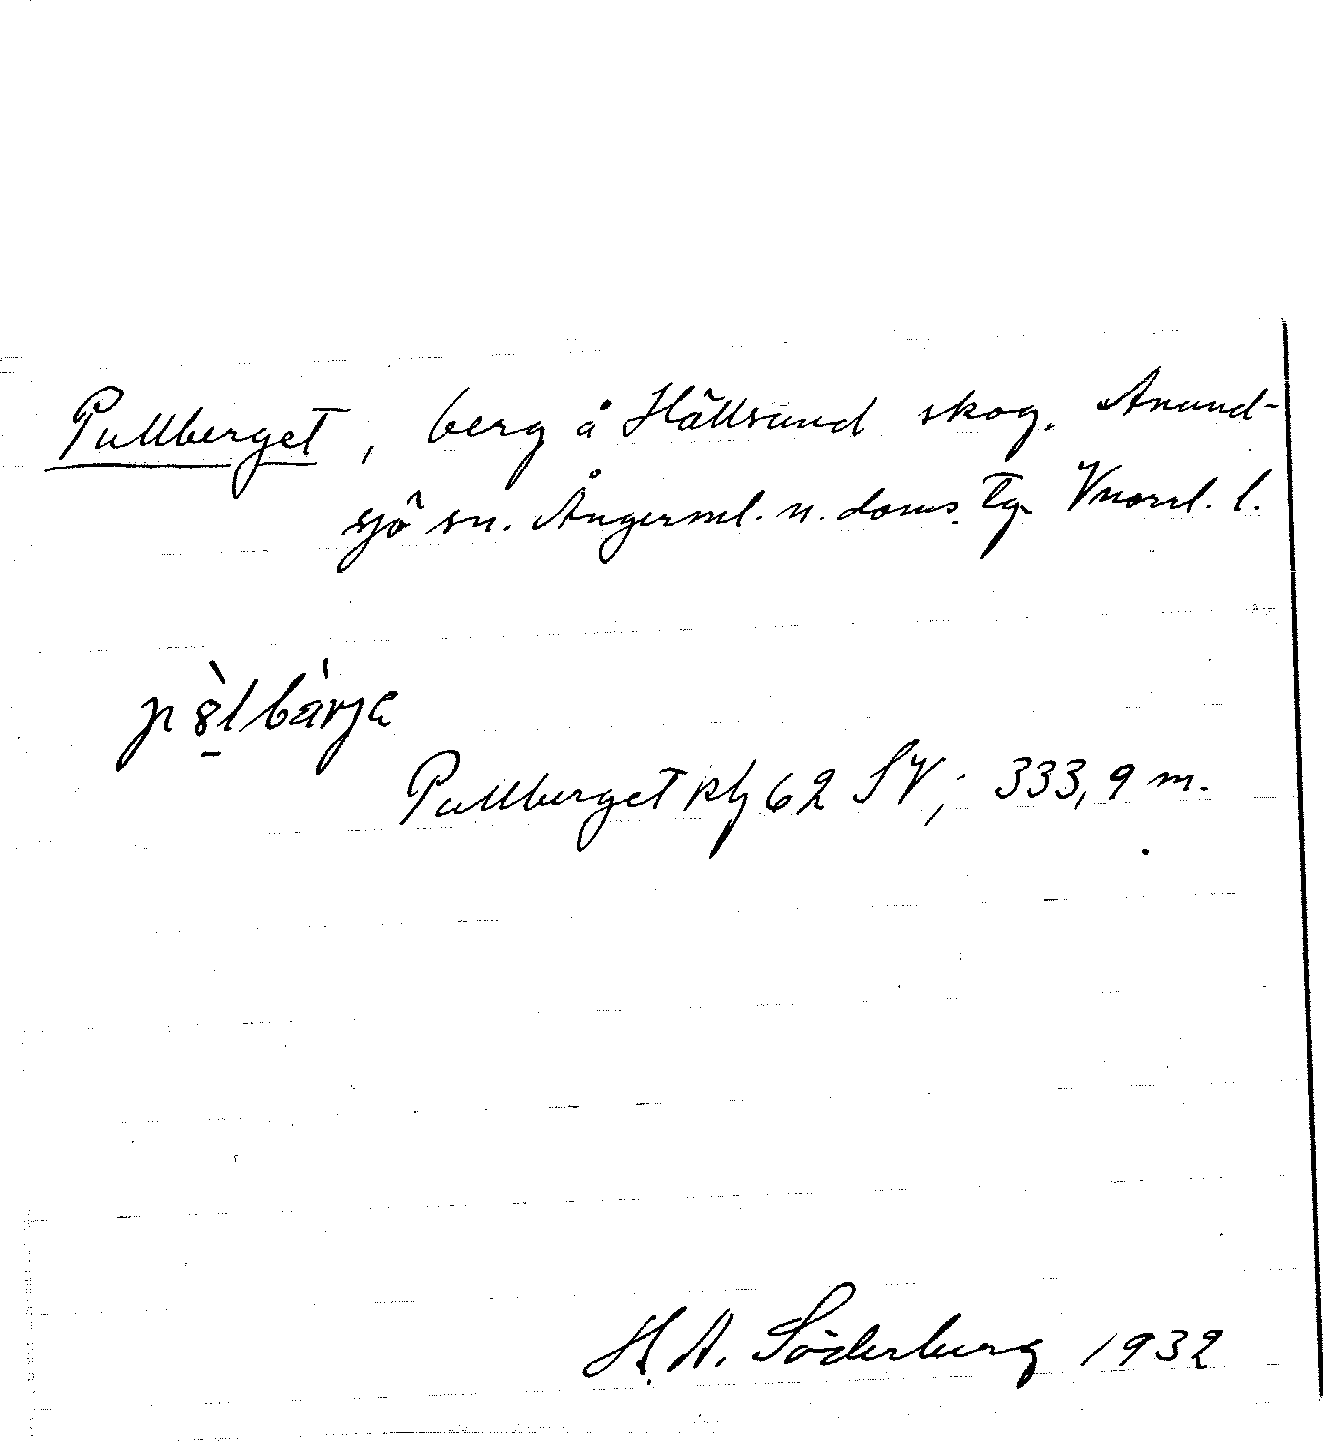 Pullberget, berg å Hällsund skog. Anund-
sjö sn. Ångerml. n. doms. tg. Vnorrl. l.
p8̱̀lbàrja
Pullberget kbl 62 SV; 333,9 m.
H. A. Söderberg 1932